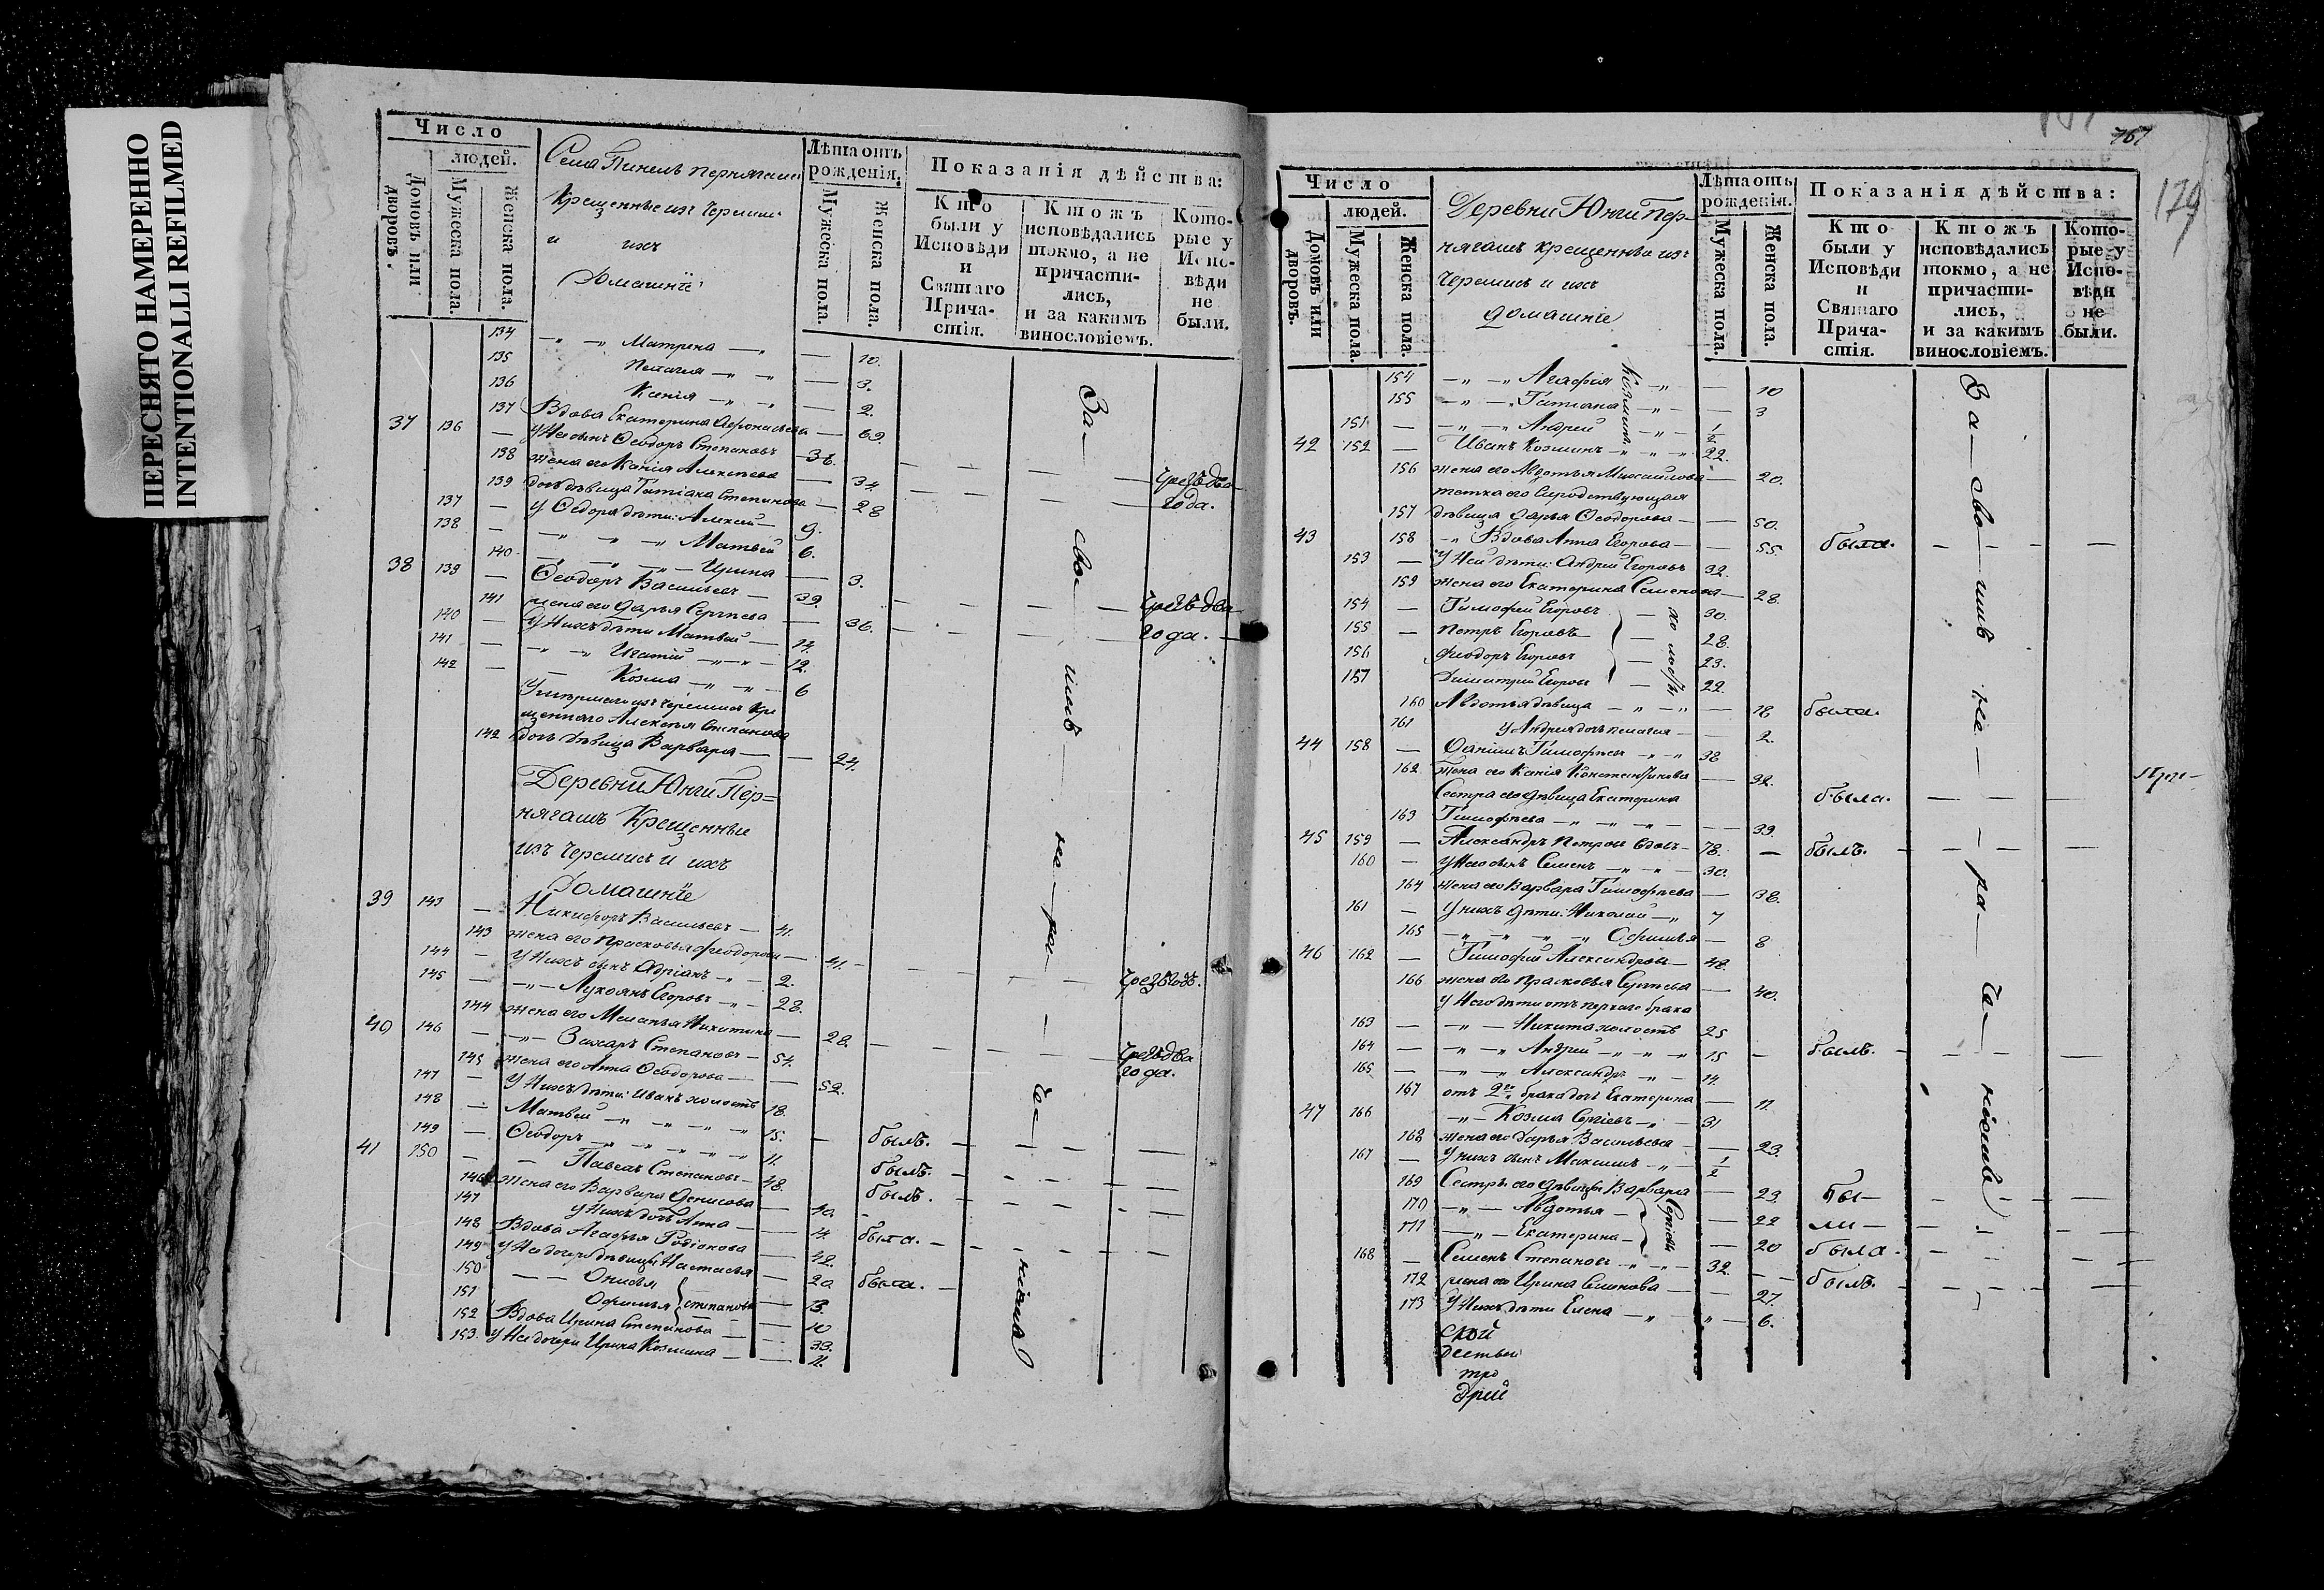 ПЕРЕСНЯТО НАМЕРЕННО
INTENTIONALLI REFILMED
Число
людей.
Домовъ или дворовъ.
Мужеска пола.
Женска пола.
Села
Крещенные изъ Черемис
и ихъ
Домашнїе
Лѣта отъ рожденїя.
Мужеска пола.
Женска пола.
Показанїя дѣйства:
Кто были у Исповѣди и Святаго Причастїя.
Ктожъ исповѣдались токмо, а не причастились, и за какимъ винословїемъ.
Которые у Исповѣди не были.
134 — „ — „ Матрена — „ — 10.
135 Пелагея — „ — „ — 3.
136 Ксенія — „ — „ — 2.
137 Вдова Екатерина Афонасьева — 69.
37 136 — У Нея сынъ Ѳеодоръ Степановъ — 36.
138 жена его Ксенія Алексѣева — 34. чрезъ два
139 дочь дѣвица Татіана Степанова — 28 года.
137 — У Ѳедора дѣти: Алексей — 9.
138 — „ — „ — „ Матвей 6.
140 — „ — „ — Ирина — 3.
38 139 — Ѳеодоръ Васильевъ — 39.
141 жена его Дарья Сергѣева — 36. чрезъ два
140 — У Нихъ дѣти Матвей — 14. года.
141 — „ — „ Игатій — „ — „ — 12.
142 — Козма — „ — „ — 6
Умершаго изъ черемисъ Кре
щеннаго Алексѣя Степанова
142 дочь дѣвица Варвара — 24.
Деревни Юнги Пер=
нягашъ Крещенныи
изъ Черемисъ и ихъ
Домашнїе
39 143 — Никифоръ Васильевъ — 41.
143 жена его Прасковья Ѳеодорова — 41.
144 — У Нихъ сынъ Адріанъ — „ — 2. чрезъ годъ.
145 — „ — Лукоянъ Егоровъ — „ — 28.
144 жена его Меланья Никитина — 28.
40 146 — „ — Захаръ Степановъ — 54. чрезъ два
145 жена его Анна Ѳеодорова — 52. года.
147 — У Нихъ дѣти: Иванъ холостъ 18. былъ.
148 — Матвей — „ — „ — „ — „ 15. былъ.
149 — Ѳеодоръ — „ — „ — „ — „ 11. былъ.
41 150 — Павелъ Степановъ — 48.
146 жена его Варвара Денисова — 40.
147 У Нихъ дочь Анна — 14 была.
148 Вдова Агафья Родіонова — 42.
149 У Нея дочери дѣвицы Настасья — 20 была.
150 — — Онисья — 13.
151 Офимья } Степановы — 10
152 Вдова Ирина Степанова — 33.
153. У Нея дочери Ирина Козмина — 11.
За — сво — имъ — не — ра — че — ніемъ
767
179
Число
людей.
Домовъ или дворовъ.
Мужеска пола.
Женска пола.
Деревни Юнги Пер-
нягашъ крещенныи изъ
Черемисъ и ихъ
домашнїе
Лѣта отъ рожденїя.
Мужеска пола.
Женска пола.
Показанїя дѣйства:
Кто были у Исповѣди и Святаго Причастїя.
Ктожъ исповѣдались токмо, а не причастились, и за какимъ винословїемъ.
Которые у Исповѣди не были.
154 — „ — „ Агафія — „ — 10
155 — „ — „ Татіана — „ — 3
151 — „ — „ Андрей — „ — 1/2
42 152 — Иванъ Козминъ — „ — „ — „ 22.
156 жена его Авдотья Михайлова — 20.
тетка его Сиродствующая
157 дѣвица Дарья Ѳеодорова — 50.
43 158 — „ Вдова Анна Егорова — 55. была.
153 — У Ней дѣти: Андрей Егоровъ 32.
159 жена его Екатерина Семенова — 28.
154 — Тимофей Егоровъ 30.
155 — Петръ Егоровъ — 28.
156 Ѳеодоръ Егоровъ — 23.
157 Димитрій Егоровъ — 22.
160 Авдотья дѣвица — „ — „ 18 была.
161 У Андрея дочь Пелагея — 2.
44 158 — Данiилъ Тимофѣевъ — „ — „ 38
162 Жена его Ксенія Константинова — 32.
Сестра его дѣвица Екатерина
163 Тимофѣева — „ — „ — „ — 39. была.
45 159 — Александръ Петровъ вдовъ — 78. былъ.
160 — У Него сынъ Семенъ — „ — „ — 30.
164 Жена его Варвара Тимофѣева — 38.
161 — У нихъ дѣти: Николай — „ 7
165 — „ — „ — „ — „ Офимья — 8
46 162 — Тимофей Александровъ — 48.
166 жена его Прасковья Сергѣева — 40.
У Него дѣти отъ перваго брака
163 — „ — Никита холостъ 25
164 — „ — „ Андрей — „ — „ — „ 15 былъ.
165 — „ — „ Александръ — „ — 14.
167 отъ 2го брака дочь Екатерина — 11.
47 166 — „ — Козма Сергіевъ — „ — 31
168 жена его Дарья Васильева — 23.
167 — У нихъ сынъ Максимъ — „ — 1/2
169 Сестры его дѣвицы Варвара — 23 бы—
170 — „ — Авдотья — 22 ли —
171 — „ — Екатерина — 20 была.
168 — Семенъ Степановъ — „ — „ — 32. былъ.
172 жена его Ирина — 27.
173 У Нихъ дѣти Елена — „ — „ — 6.
За — сво — имъ не — ра — че — ніемъ
ской
тро
дрий